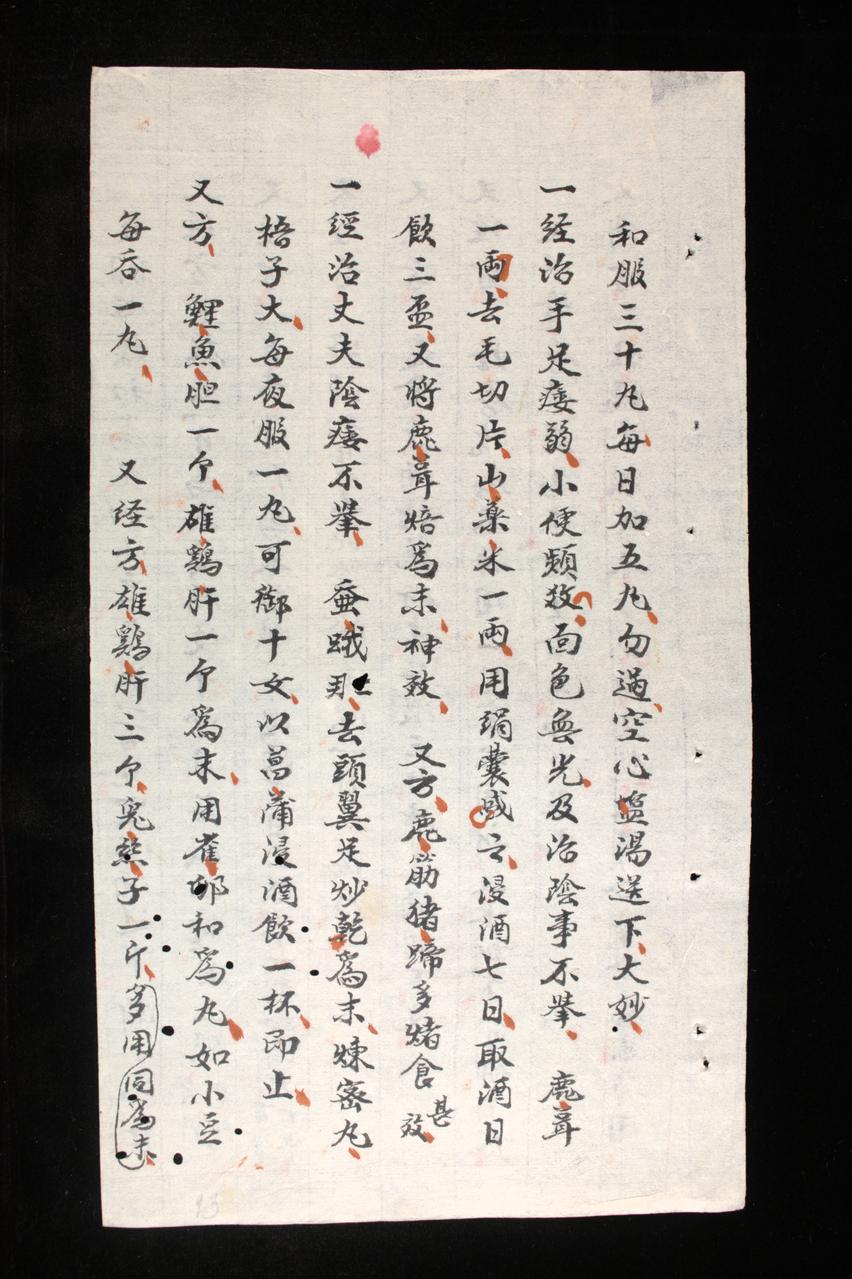 和服三十丸每日加五丸勿過空心塩湯送下大妙
一経治手足痿弱小便頻数面色無光及治陰事不举 鹿茸
一両去毛切片山藥米一両用絹囊盛之浸酒七日取酒日
飲三盃又将鹿茸焙為末神效 又方鹿筋猪蹄多煑食甚效
一經治丈夫陰痿不举 蚕蛾去頭翼足炒乾為末煉蜜丸
梧子大每夜服一丸可御十女以菖蒲浸酒飲一杯即止
又方 鯉魚胆一个雄鷄肝一个為末用雀卵和為丸如小豆
每吞一丸 又経方雄鷄肝三个兔絲子一斤多用同為末